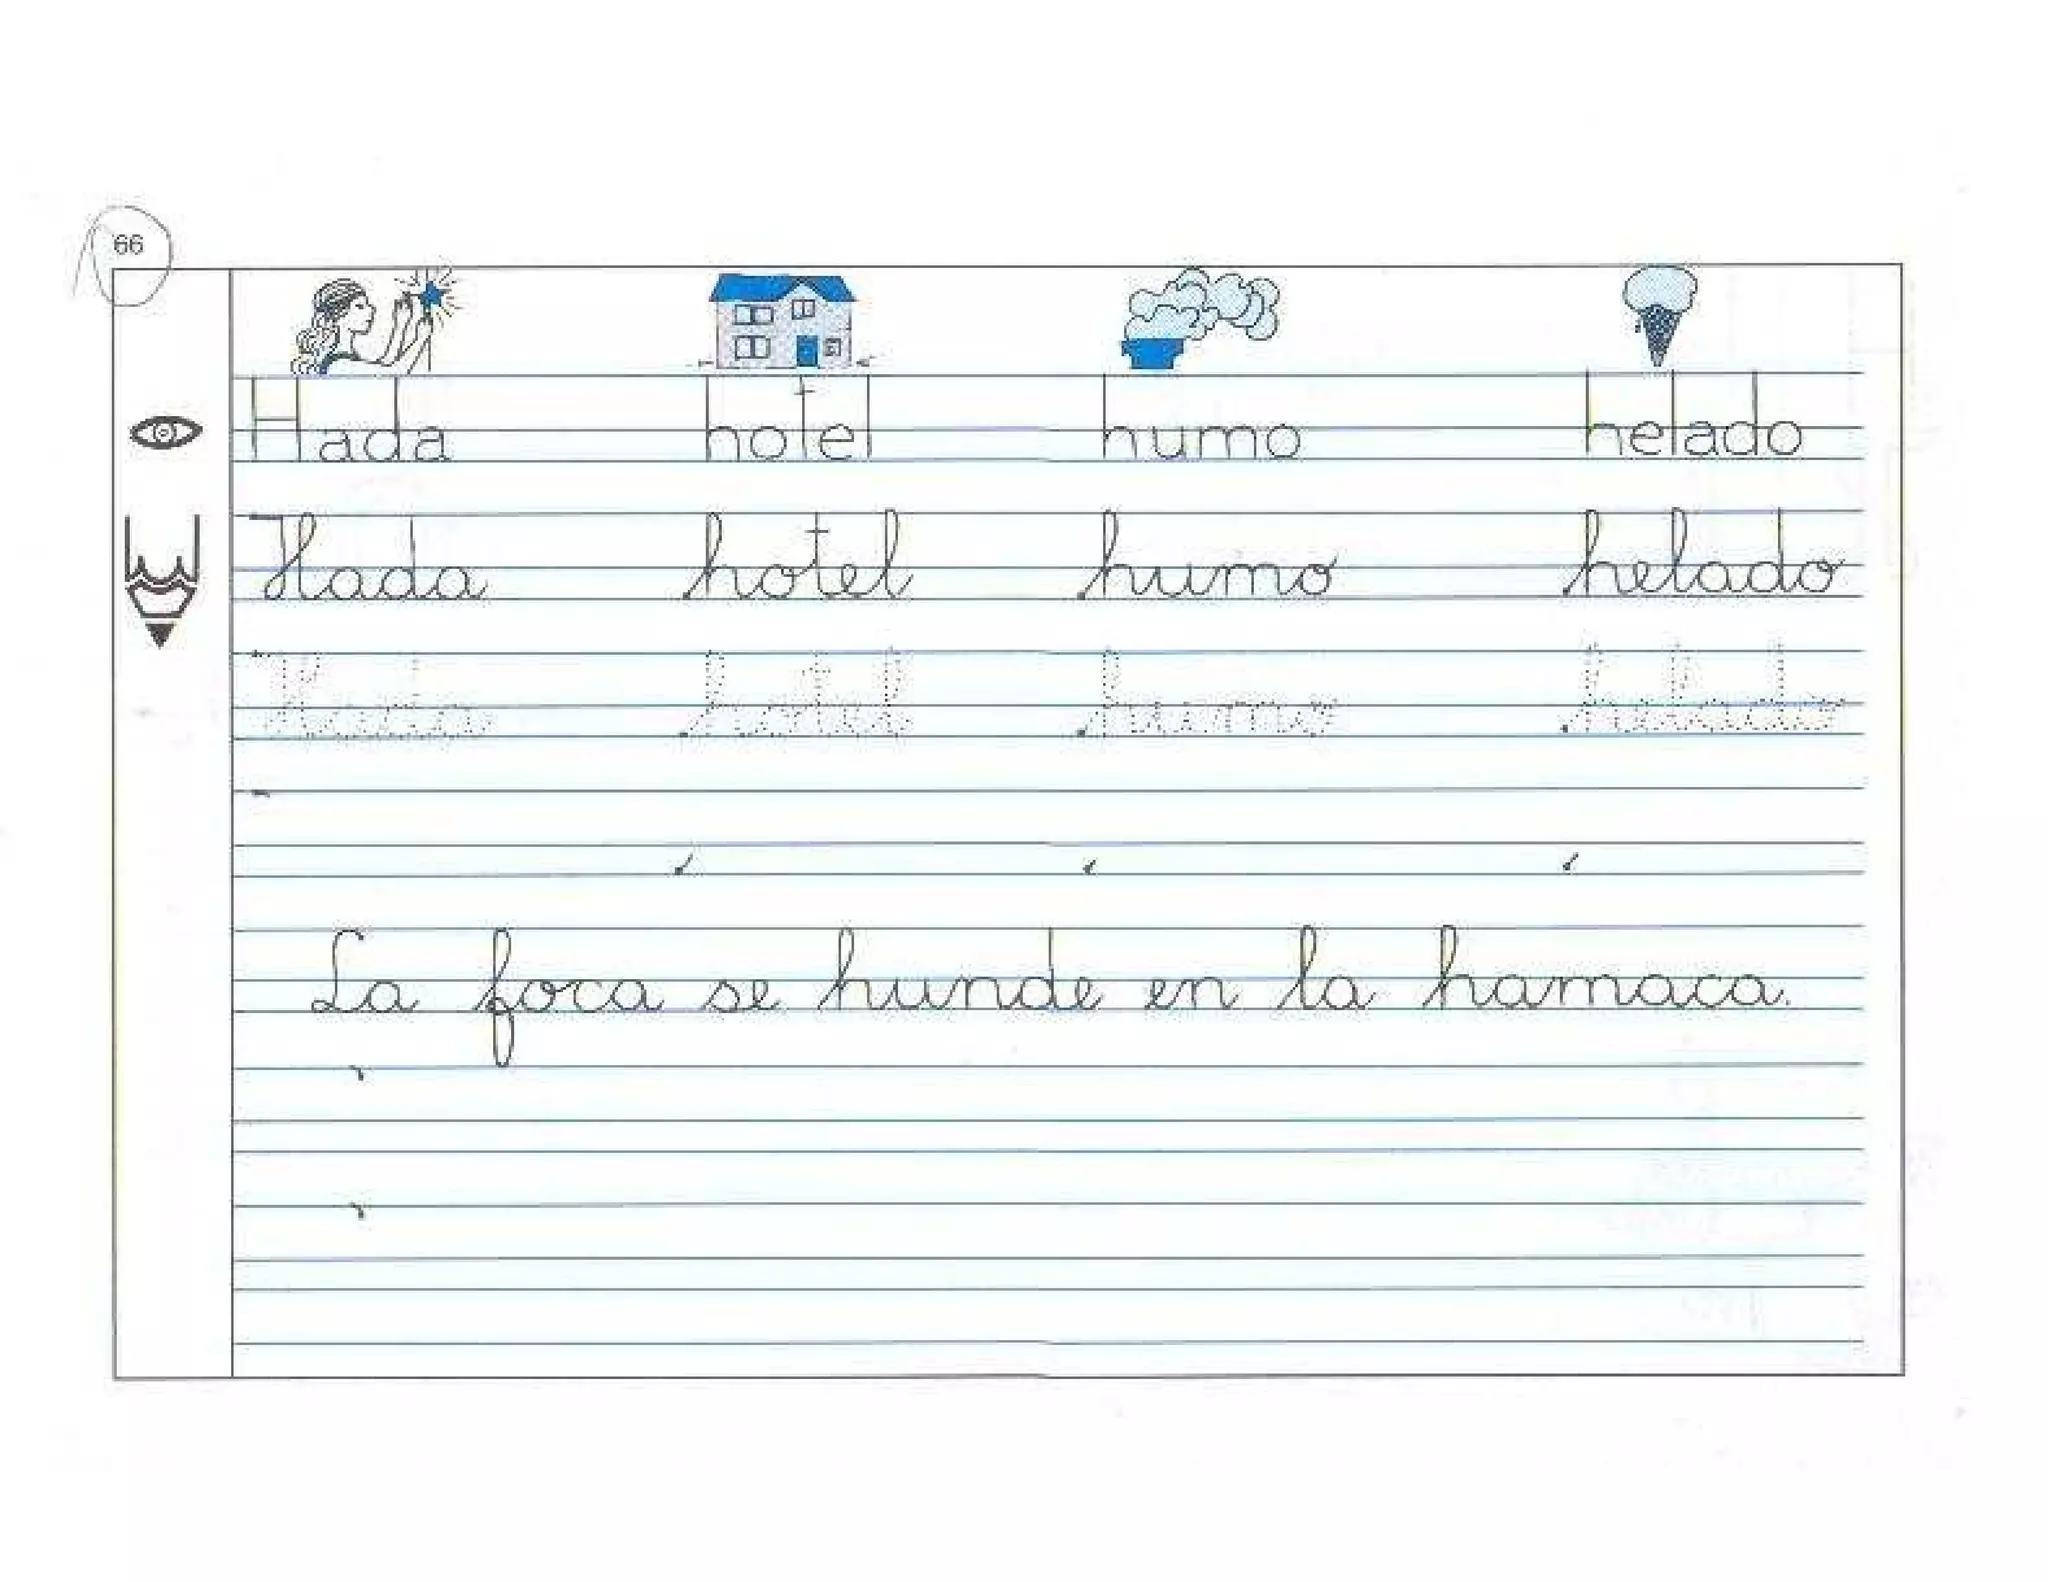 66
Hada hotel humo helado
Hada hotel humo helado
Hada hotel humo helado
La foca se hunde en la hamaca.